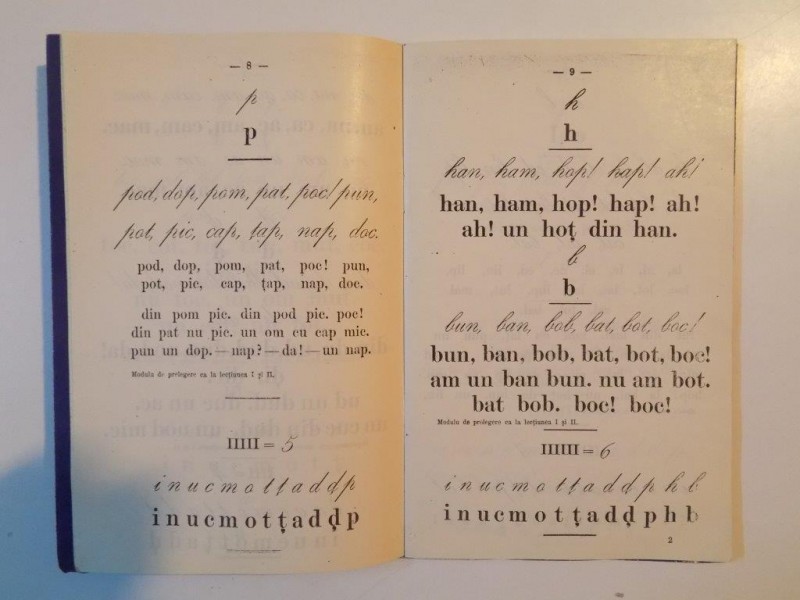 — 8 —
p
p
pod, dop, pom, pat, poc! pun,
pot, pic, cap, țap, nap, doc.
pod, dop, pom, pat, poc! pun,
pot, pic, cap, țap, nap, doc.
din pom pic. din pod pic. poc!
din pat nu pic. un om cu cap mic.
pun un dop. — nap? — da! — un nap.
Modulu de prelegere ca la lecțiunea I și II.
IIIII = 5
i n u c m o t ț a d d̦ p
i n u c m o t ț a d d̦ p
— 9 —
h
h
han, ham, hop! hap! ah!
han, ham, hop! hap! ah!
ah! un hoț din han.
b
b
bun, ban, bob, bat, bot, boc!
bun, ban, bob, bat, bot, boc!
am un ban bun. nu am bot.
bat bob. boc! boc!
Modulu de prelegere ca la lecțiunea I și II.
IIIIII = 6
i n u c m o t ț a d d̦ p h b
i n u c m o t ț a d d̦ p h b
2